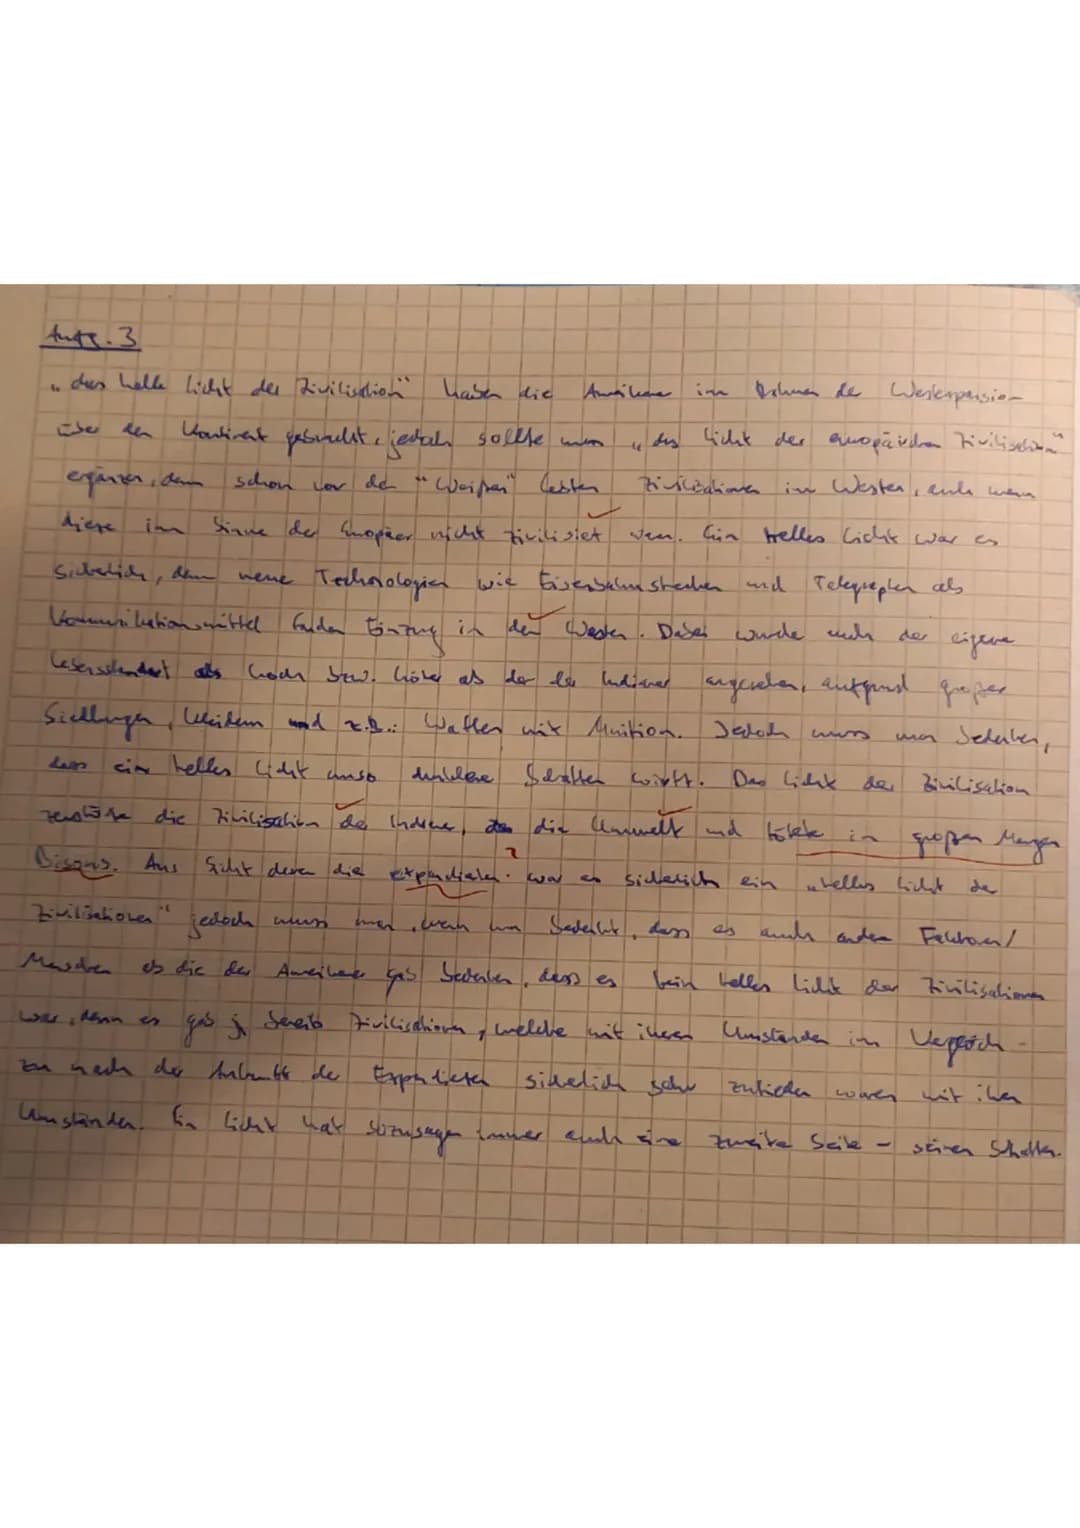 Aufg. 3
„das helle Licht der Zivilisation" haben die Amerikaner im Rahmen der Westexpansion
über den Kontinent gebracht, jedoch sollte man „das Licht der europäischen Zivilisation"
ergänzen, denn schon vor den "Weißen" lebten Zivilisationen im Westen, auch wenn
diese im Sinne der Europäer nicht zivilisiert waren. Ein helles Licht war es
sicherlich, denn neue Technologien wie Eisenbahnstrecken und Telegraphen als
Kommunikationsmittel fanden Einzug in den Westen. Dabei wurde auch der eigene
Lebensstandart als hoch bzw. höher als der der Indianer angesehen, aufgrund großer
Siedlungen, Kleidern und z.B.: Waffen mit Munition. Jedoch muss man bedenken,
dass ein helles Licht umso dunklere Schatten wirft. Das Licht der Zivilisation
zerstörte die Zivilisation der Indianer, die Umwelt und tötete in großen Mengen
Bisons. Aus Sicht deren die ? war es sicherlich ein „helles Licht der
Zivilisationen" jedoch muss man, wenn man bedenkt, dass es auch andere Faktoren/
Menschen als die der Amerikaner gab bedenken, dass es kein helles Licht der Zivilisationen
war, denn es gab ja bereits Zivilisationen, welche mit ihren Umständen im Vergleich
zu nach der Ankunft der sicherlich sehr zufrieden waren mit ihren
Umständen. Ein Licht hat sozusagen immer auch eine zweite Seite - seinen Schatten.